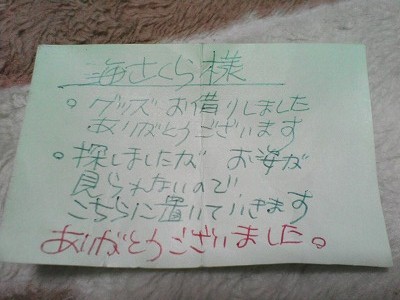 海さくら様
。グッズ お借りしました
ありがとうございます
。探しましたが お姿が
見られないので、
こちらに置いていきます
ありがとうございました。